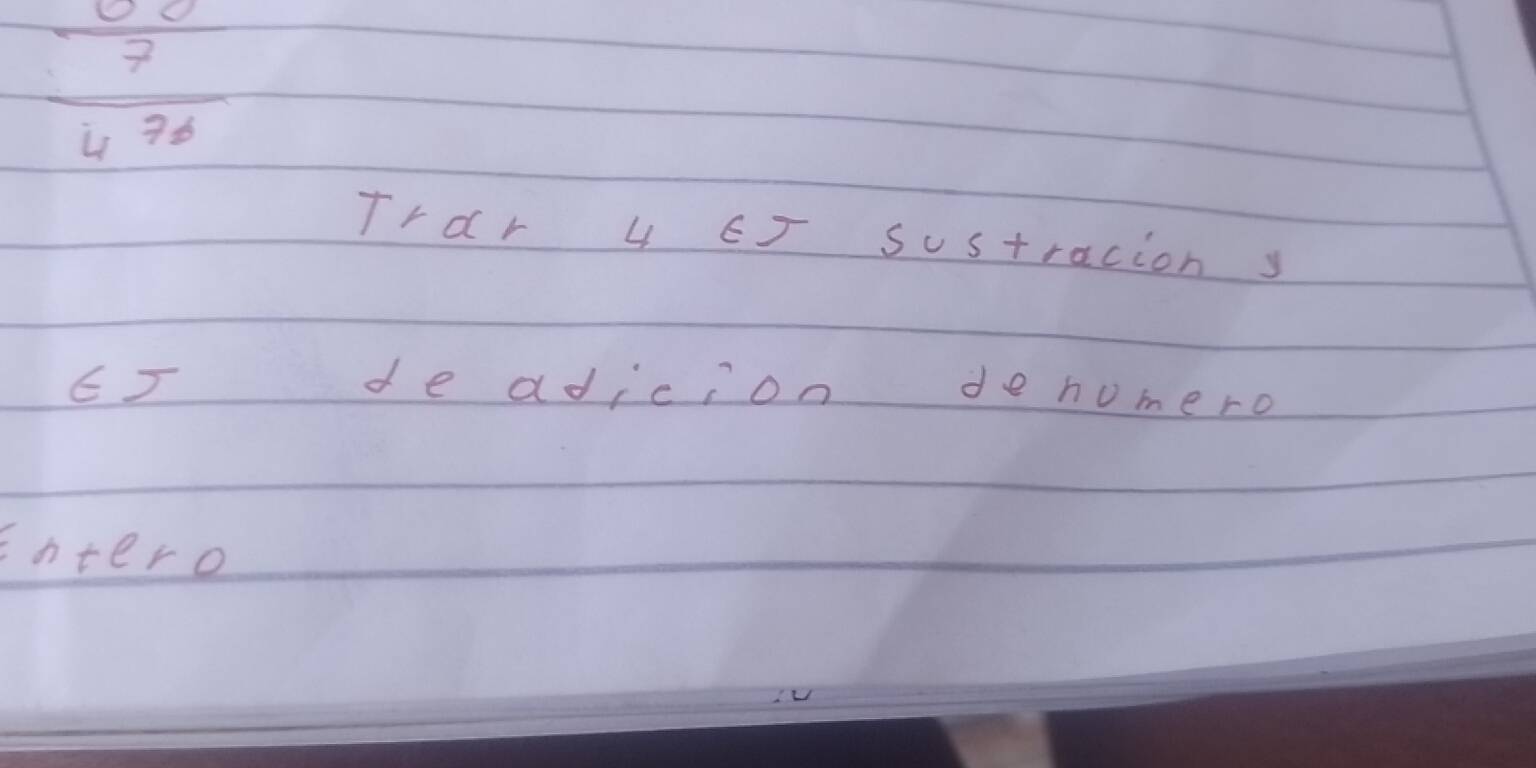 7
4 76
Trar 4 EJ sustracion y
EJ de adicion de numero
Entero